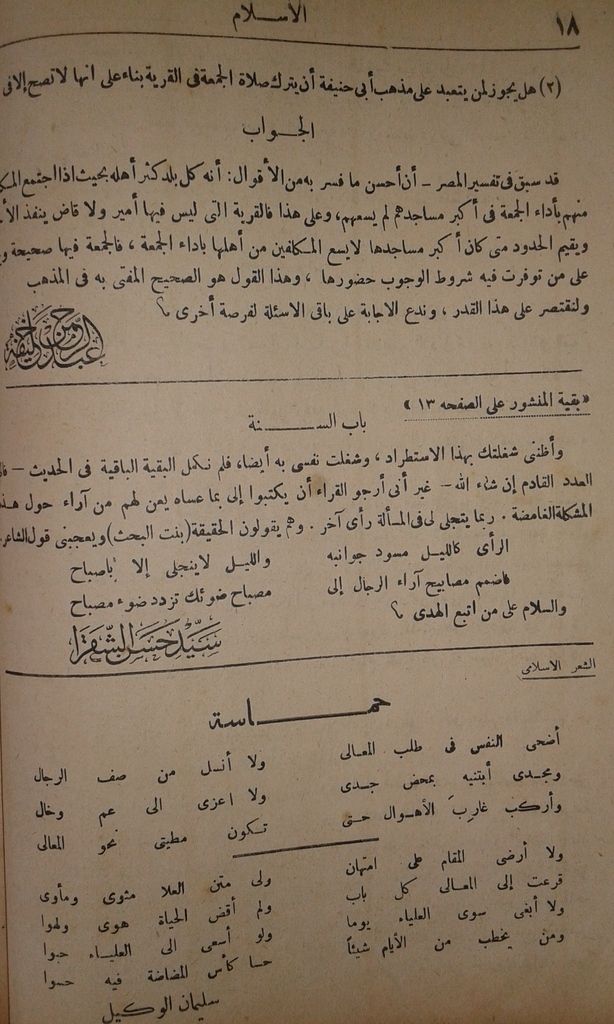 ١٨
الاسلام
(٢) هل يجوز لمن يتعبد على مذهب أبى حنيفة أن يترك صلاة الجمعة فى القرية بناء على انها لا تصح إلا فى
الجواب
قد سبق فى تفسير المصر – أن أحسن ما فسر به من الأقوال: أنه كل بلد كثر أهله بحيث اذا اجتمع
منهم بأداء الجمعة فى أكبر مساجدهم لم يسعهم، وعلى هذا فالقرية التى ليس فيها أمير ولا قاض ينفذ
ويقيم الحدود متى كان أكبر مساجدها لايسع المكلفين من أهلها باداء الجمعة ، فالجمعة فيها صحيحة
على من توفرت فيه شروط الوجوب حضورها ، وهذا القول هو الصحيح المفتى به فى المذهب
ولنقتصر على هذا القدر ، وندع الاجابة على باقى الاسئلة لفرصة أخرى
عبد الرحمن خليفة
«بقية المنشور على الصفحه ١٣»
باب الســنة
وأظننى شغلتك بهذا الاستطراد ، وشغلت نفسى به أيضا، فلم نكمل البقية الباقية فى الحديث –
العدد القادم إن شاء الله – غير أنى أرجو القراء أن يكتبوا إلى بما عساه يعن لهم من آراء حول
المشكلة الغامضة . ربما يتجلى لى فى المسألة رأى آخر . وهم يقولون الحقيقة (بنت البحث) ويعجبنى قول الشاعر
الرأى كالليل مسود جوانبه والليل لاينجلى إلا باصباح
فاضمم مصابيح آراء الرجال إلى مصباح ضوئك تزدد ضوء مصباح
والسلام على من اتبع الهدى
سيد حسن الشقرا
الشعر الاسلامى
حمــاسة
أضحى النفس فى طلب المعالى ولا أنسل من صف الرجال
ومجدى أبتنيه بمحض جدى ولا اعزى الى عم وخال
وأركب غارب الأهوال حتى تكون مطيتى نحو المعالى
ولا أرضى المقام على امتهان ولى متن العلا مثوى ومأوى
قرعت إلى المعالى كل باب ولم أقض الحياة هوى ولهوا
ولا أبغى سوى العلياء يوما ولو أسعى الى العلياء حبوا
ومن يخطب من الأيام شيئاً حسا كأس المضاضة فيه حسوا
سليمان الوكيل